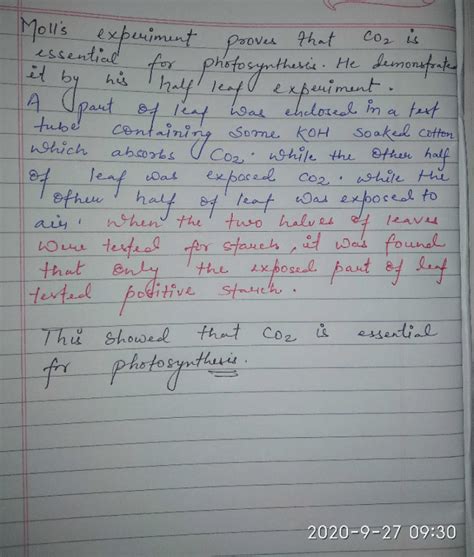 Moll's experiment proves that CO2 is
essential for photosynthesis. He demonstrated
it by his half leaf experiment.
A part of leaf was enclosed in a test
tube containing some KOH soaked cotton
which absorbs CO2. while the other half
of leaf was exposed CO2. while the
other half of leaf was exposed to
air. when the two halves of leaves
were tested for starch, it was found
that only the exposed part of leaf
tested positive starch.
This showed that CO2 is essential
for photosynthesis.
2020-9-27 09:30